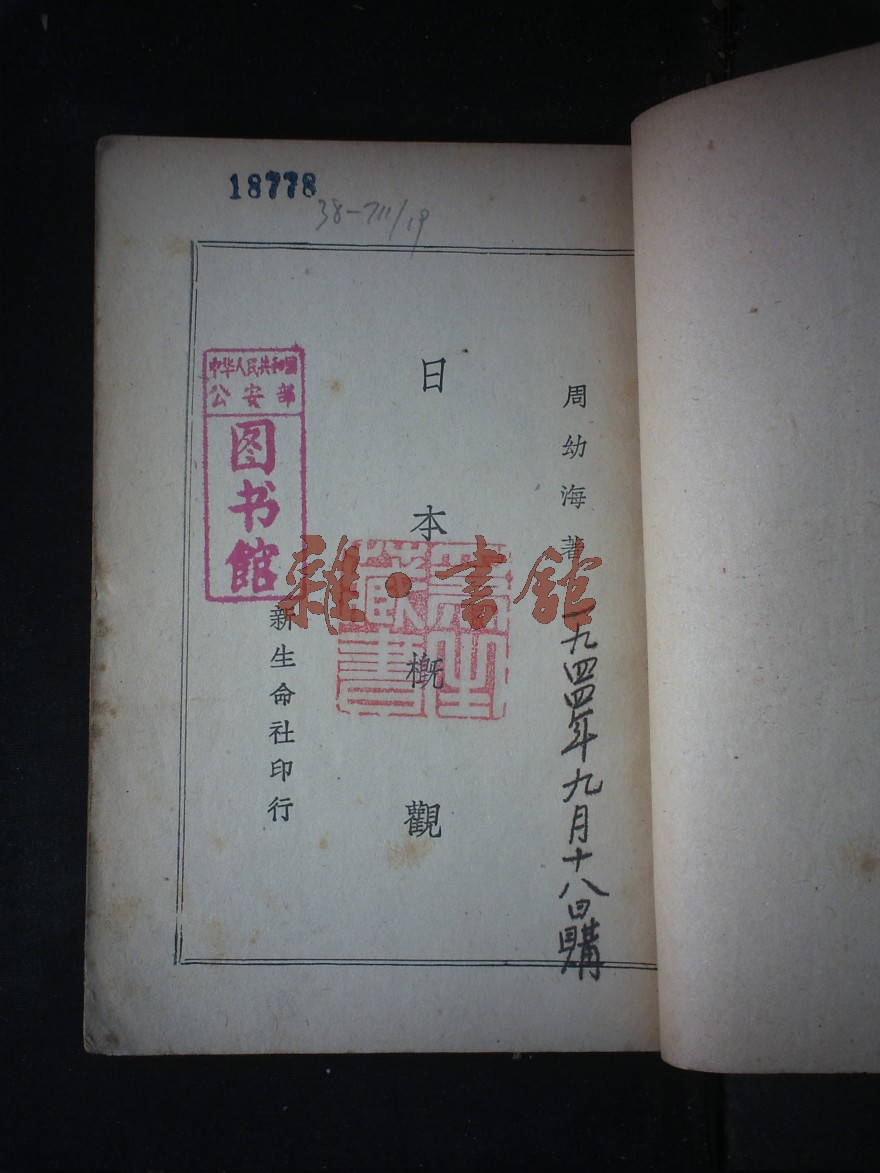 18778
38-711/19
周幼海著
一九四四年九月十八日購
日本概觀
藏書
中华人民共和國
公安部
图书館
新生命社印行
雜·書館